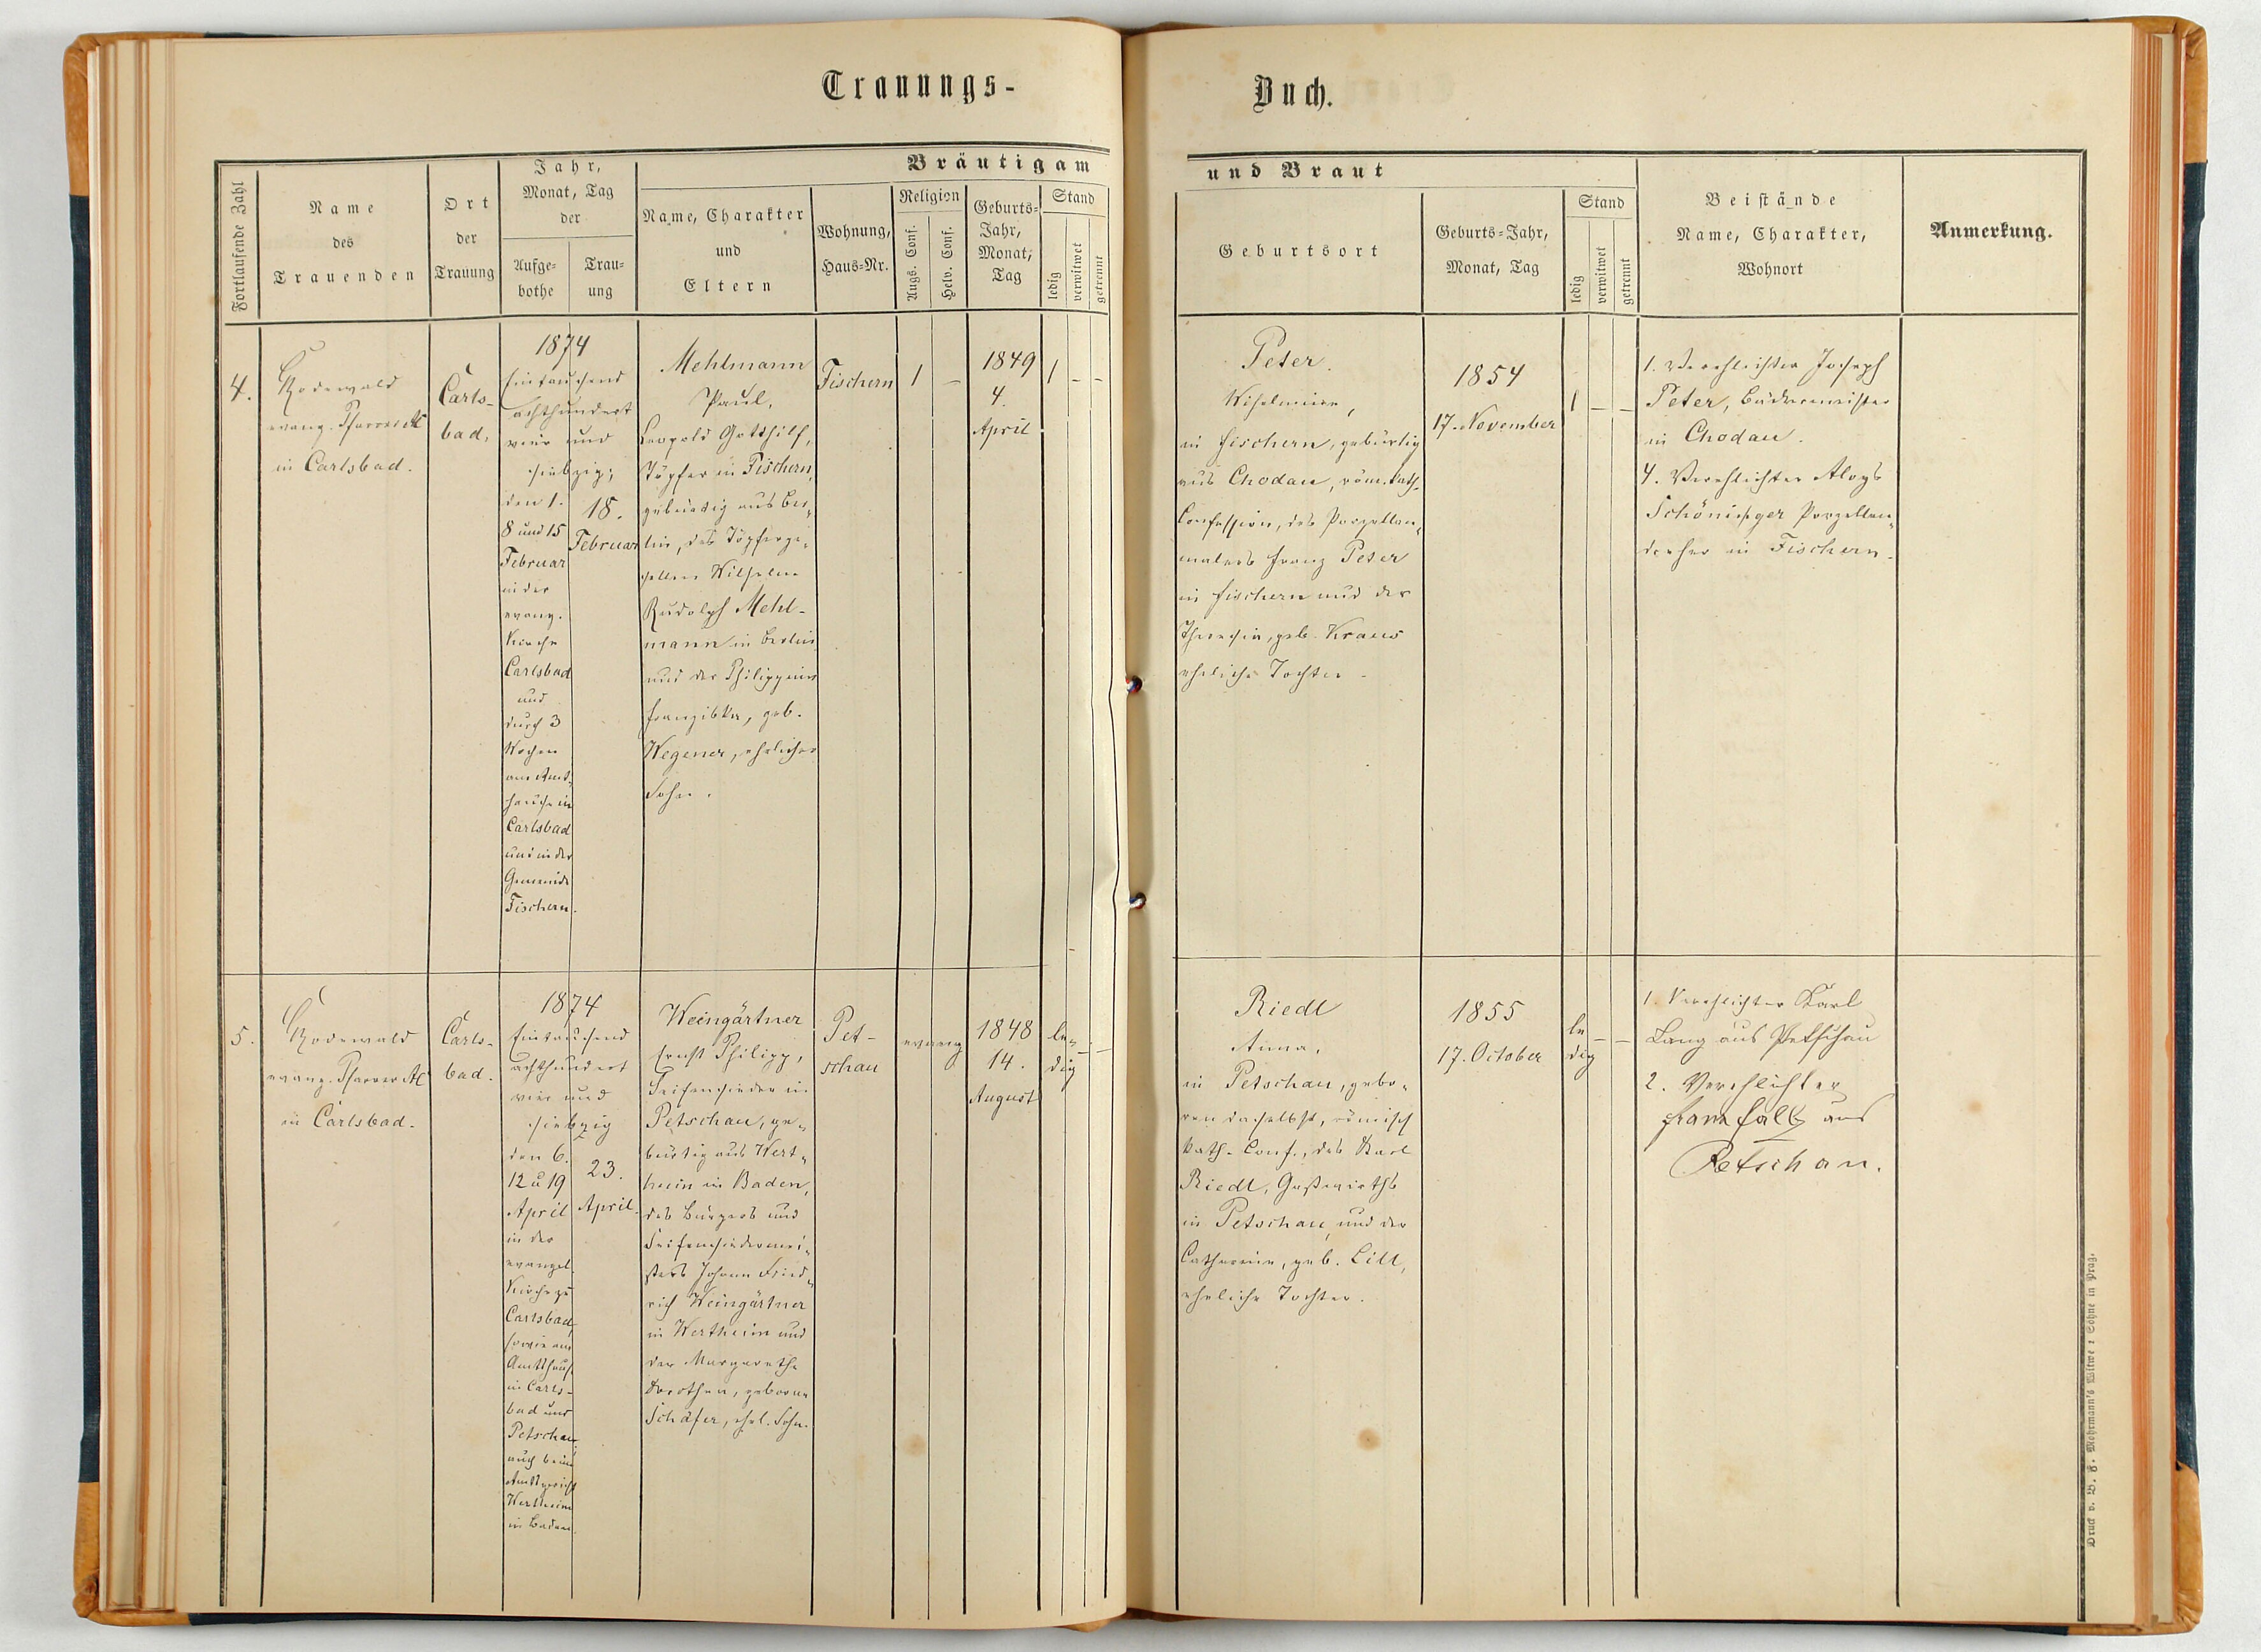 Trauungs-
Buch.
Fortlaufende Zahl
Name
des
Trauenden
Ort
der
Trauung
Jahr,
Monat, Tag
der
Aufge-
bothe
Trau-
ung
Bräutigam
Name, Charakter
und
Eltern
Wohnung,
Haus-Nr.
Religion
Augs. Conf.
Helv. Conf.
Geburts-
Jahr,
Monat,
Tag
Stand
ledig
verwitwet
getrennt
und Braut
Geburtsort
Geburts-Jahr,
Monat, Tag
Stand
ledig
verwitwet
getrennt
Beistände
Name, Charakter,
Wohnort
Anmerkung.
4.
Rodewald
evang. Pfarrer AC
in Carlsbad.
Carls-
bad.
1874
Eintausend
achthundert
vier und
siebzig;
den 1.
8 und 15
Februar
in der
evang.
Kirche
Carlsbad
und
durch 3
Wochen
am Amts-
hause in
Carlsbad
und in der
Gemeinde
Fischern.
18.
Februar
Mehlmann
Paul,
Leopold Gotthilf,
Töpfer in Fischern,
gebürtig aus Ber-
lin, des Töpferge-
sellen Wilhelm
Rudolph Mehl-
mann in Berlin
und der Philippine
Franziska, geb.
Wegener, ehelicher
Sohn.
Fischern
1
-
1849
4.
April
1
-
-
Peter
Wihelmine,
in Fischern, gebürtig
aus Chodau, röm. kath.
Confession, des Porzellan-
malers Franz Peter
in Fischern und der
Theresia, geb. Kraus
eheliche Tochter.
1854
17. November
1
-
-
1. Verehlichter Joseph
Peter, Bäckermeister
in Chodau.
4. Verehlichter Aloys
Schöniger Porzellan-
dreher in Fischern.
5.
Rodewald
evang. Pfarrer AC
in Carlsbad.
Carls-
bad.
1874
Eintausend
achthundert
vier und
siebzig
den 6.
12 u 19
April
in der
evangel.
Kirche zu
Carlsbad,
sowie am
Amtshause
in Carls-
bad und
Petschau,
auch beim
Amtsgericht
Wertheim
in Baden.
23.
April.
Weingärtner
Ernst Philipp,
Seifensieder in
Petschau, ge-
bürtig aus Wert-
heim in Baden,
des Bürgers und
Seifensiedermei-
sters Johann Fried-
rich Weingärtner
in Wertheim und
der Margarethe
Dorothea, geborne
Schäfer, ehel. Sohn.
Pet-
schau
evang
1848
14.
August
le-
dig
-
-
Riedl
Anna,
in Petschau, gebo-
ren daselbst, römisch
kath. Conf., des Karl
Riedl, Gastwirths
in Petschau, und der
Catharine, geb. Lill,
eheliche Tochter.
1855
17. October
le
dig
-
-
1. Verehlichter Karl
Lang aus Petschau
2. Verehlichter
Franz aus
Petschau.
Druck v. B. F. Mohrmann's Witwe & Söhne in Prag.